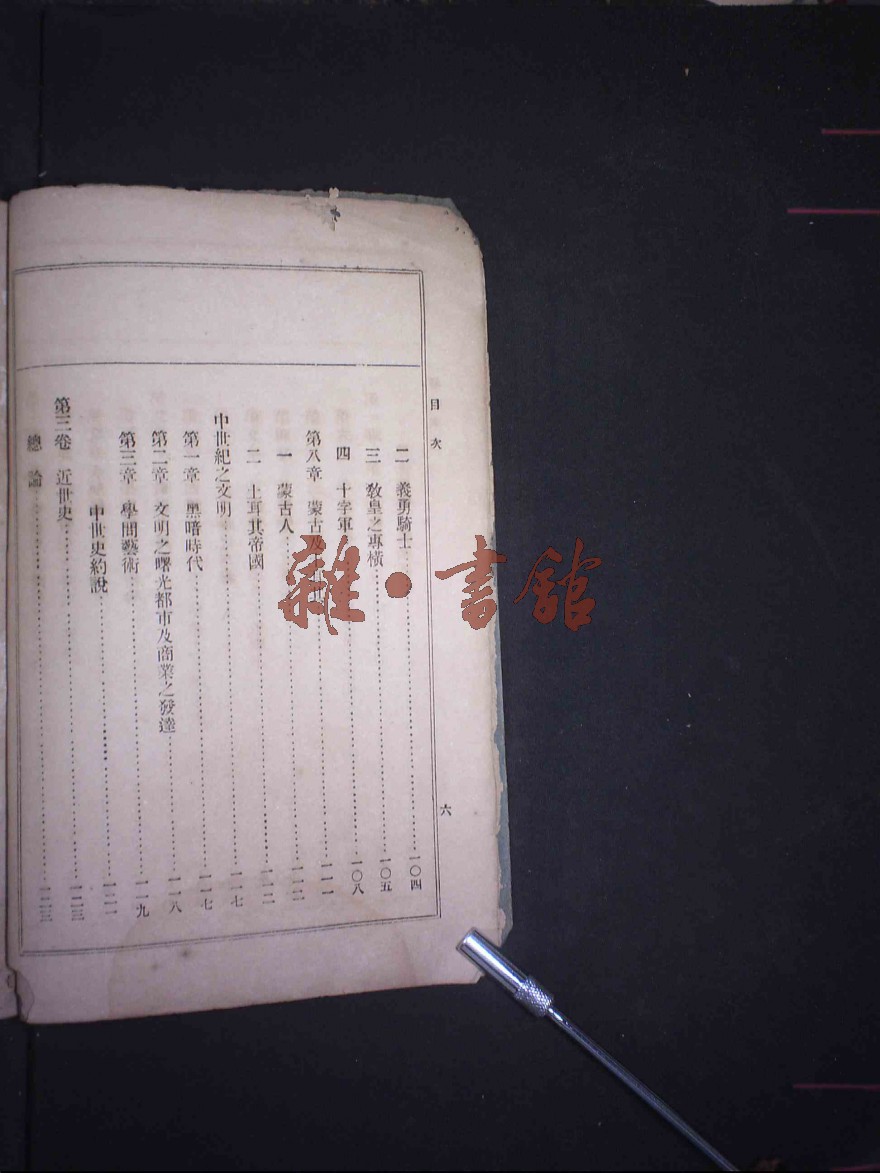 目次
六
二 義勇騎士……一〇四
三 教皇之專橫……一〇五
四 十字軍……一〇八
第八章 蒙古及……一一一
一 蒙古人……一一一
二 土耳其帝國……一一二
中世紀之文明……一一七
第一章 黑暗時代……一一七
第二章 文明之曙光都市及商業之發達……一一八
第三章 學問藝術……一一九
中世史約說……一二一
第三卷 近世史……一二三
總論……一二三
雜·書館